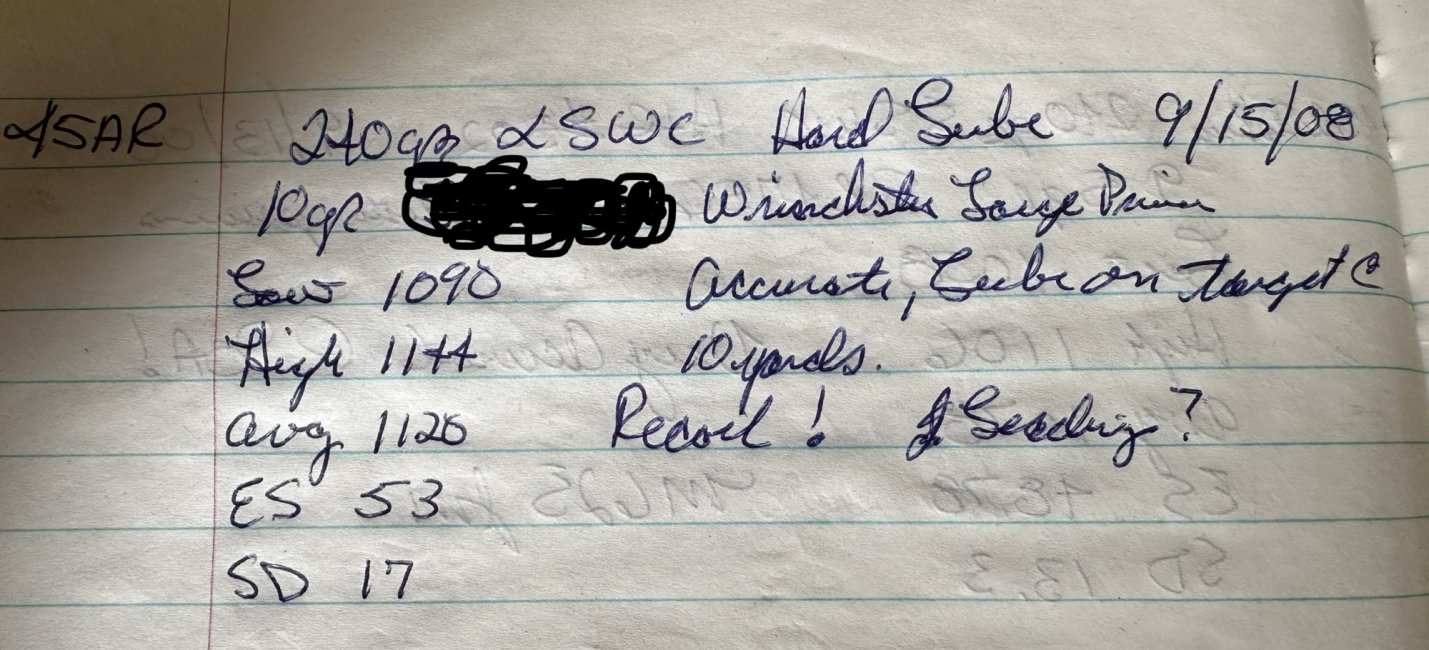 45AR 240gr LSWC Hard Lube 9/15/08
10gr Winchster Large Primer
Low 1090 Accurate, Lube on target @
High 1144 10 yards.
avg 1120 Recoil! Leading?
ES 53
SD 17